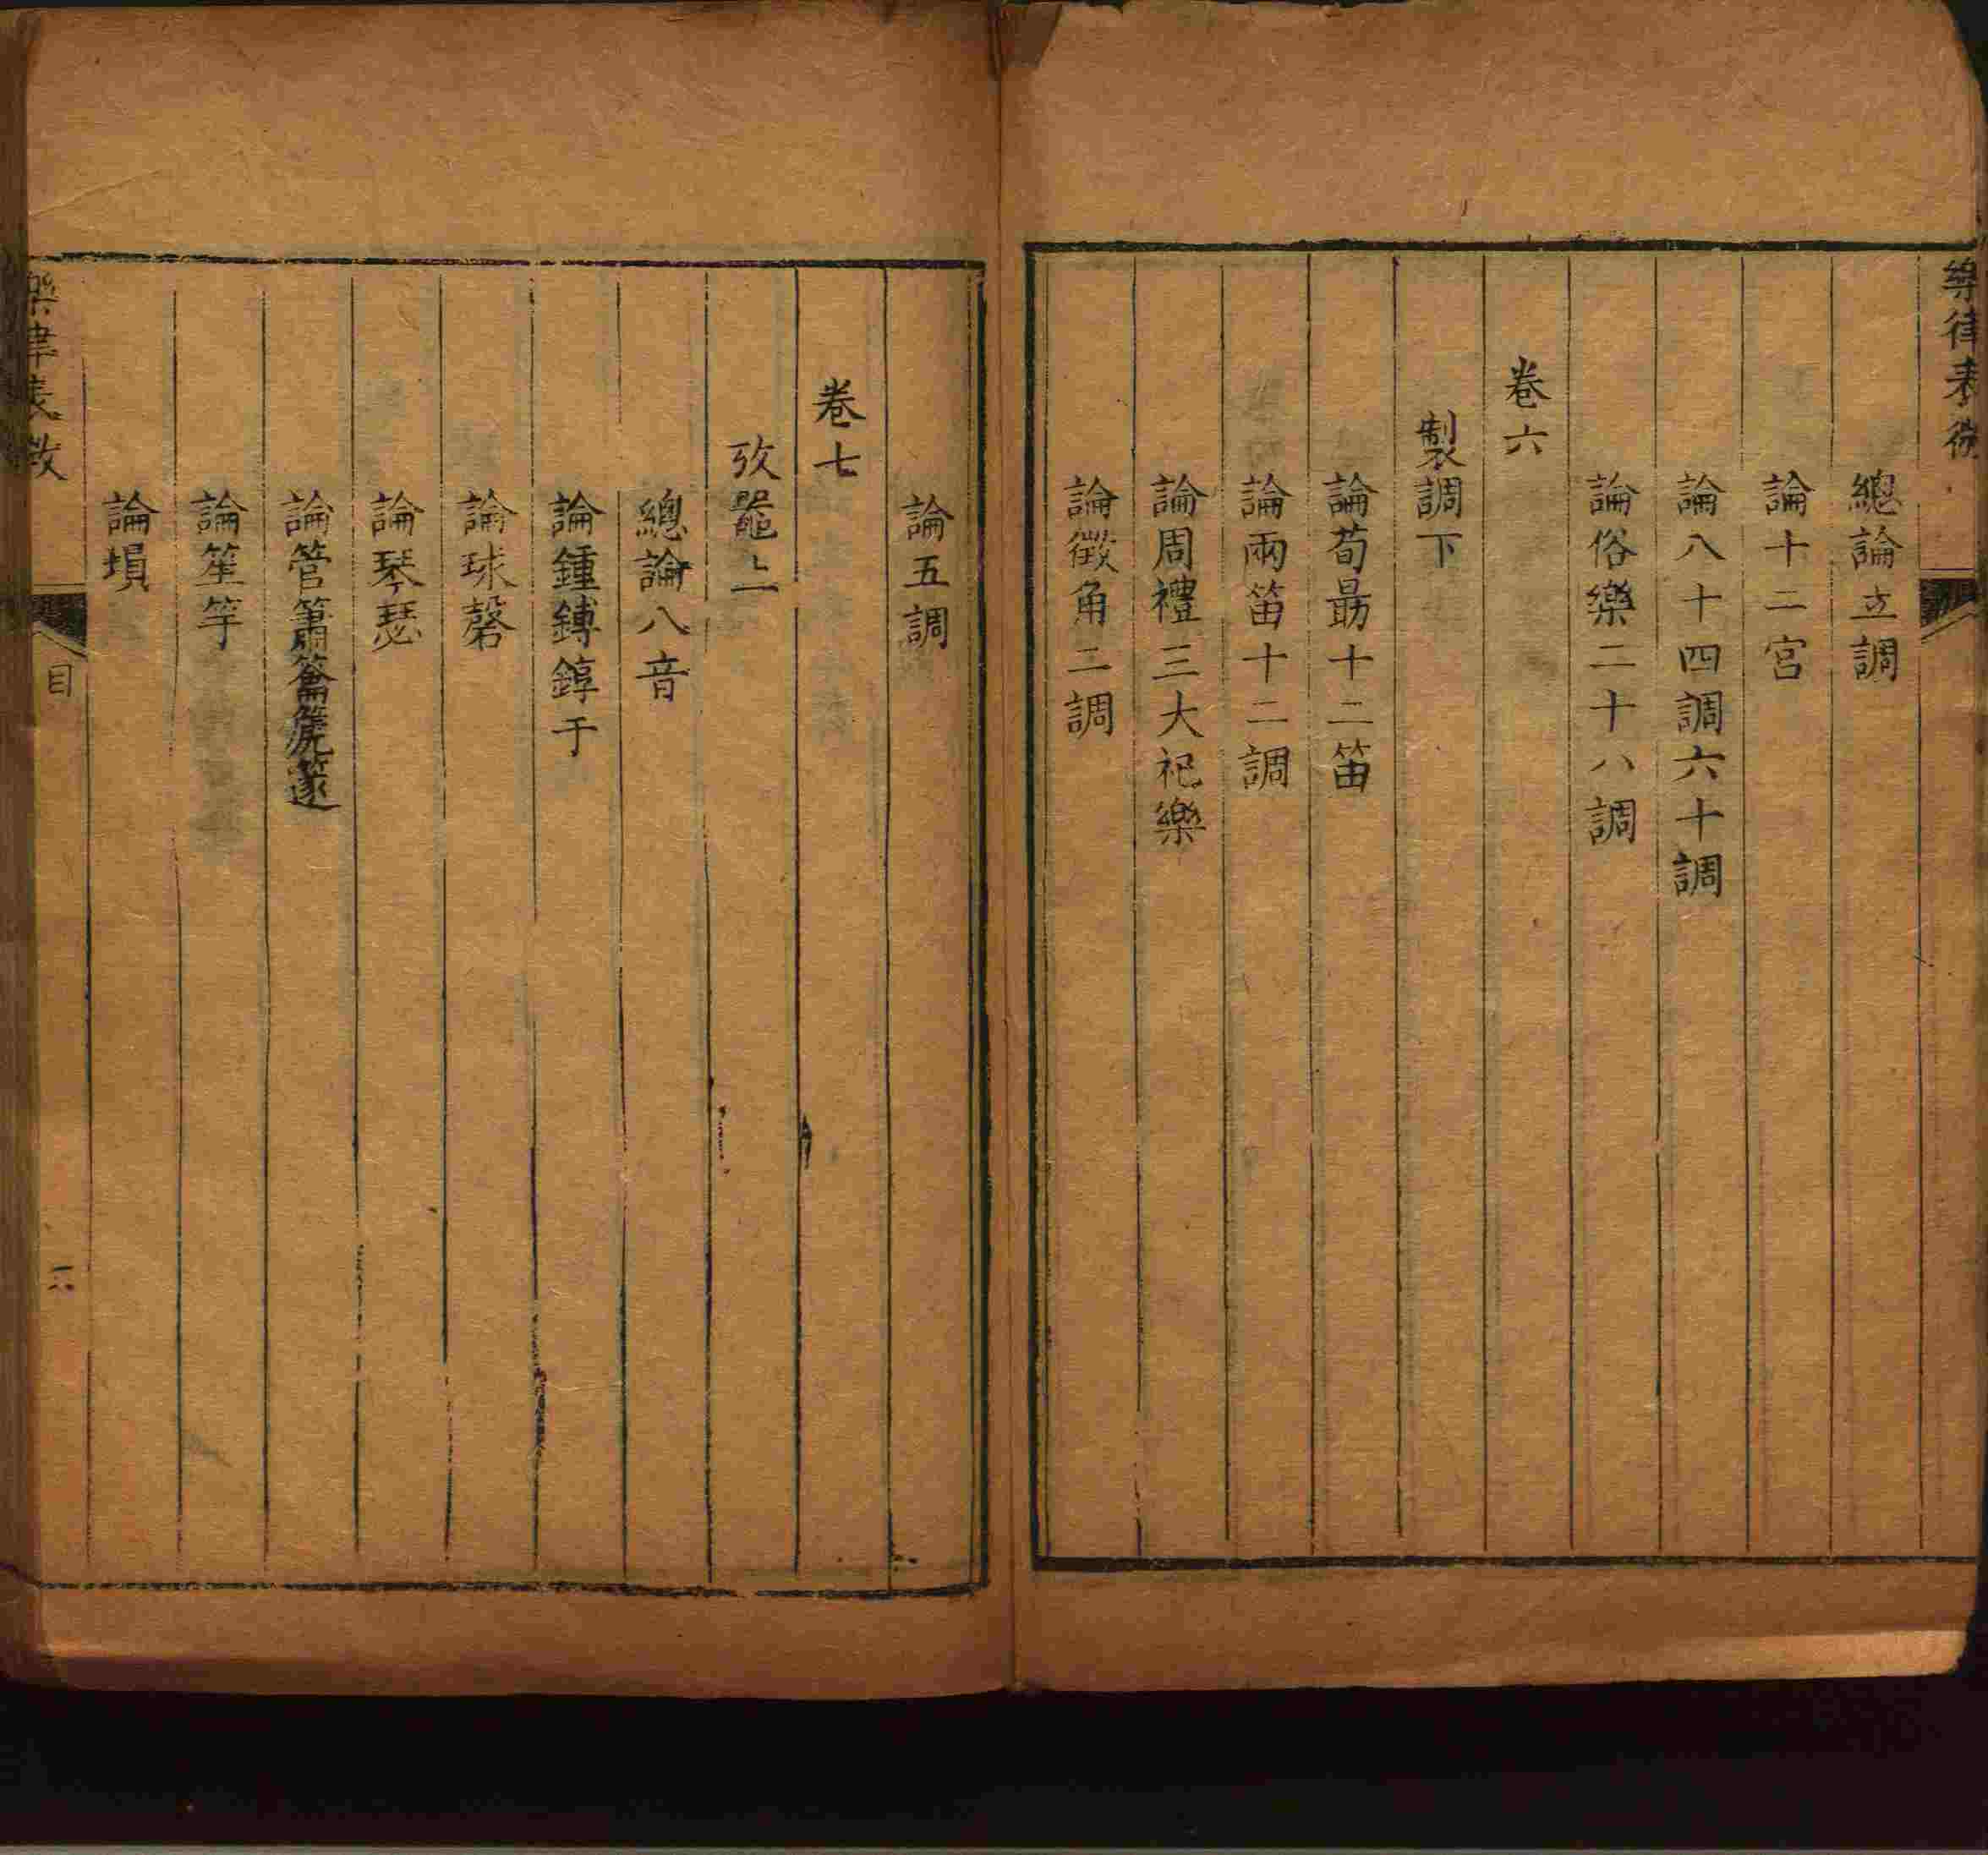 樂律表微
總論立調
論十二宮
論八十四調六十調
論俗樂二十八調
卷六
製調下
論荀勗十二笛
論兩笛十二調
論周禮三大祀樂
論徵角二調
論五調
卷七
攷器上
總論八音
論鍾鎛錞于
論球磬
論琴瑟
論管簫籥篪篴
論笙竽
論塤
樂律表微
目